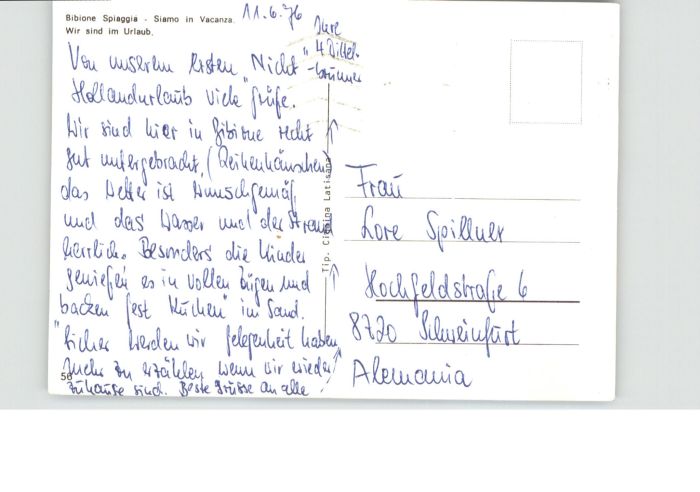 Bibione Spiaggia - Siamo in Vacanza.
Wir sind im Urlaub.
11.6.76
Von unserem ersten "Nicht
Hollandurlaub viele Grüße.
Wir sind hier in Bibione recht
gut untergebracht, (Reihenhäuschen)
das Wetter ist Wunschgemäß,
und das Wasser und der Strand
herrlich. Besonders die Kinder
genießen es in vollen Zügen und
backen fest "Kuchen" im Sand.
Sicher werden wir Gelegenheit haben,
mehr zu erzählen wenn wir wieder
zuhause sind. Beste Grüsse an alle!
Eure
"4 Dittel-
-brunner
Tip. Latisana
50
Frau
Lore Spillner
Hochfeldstraße 6
8720 Schweinfurt
Alemania